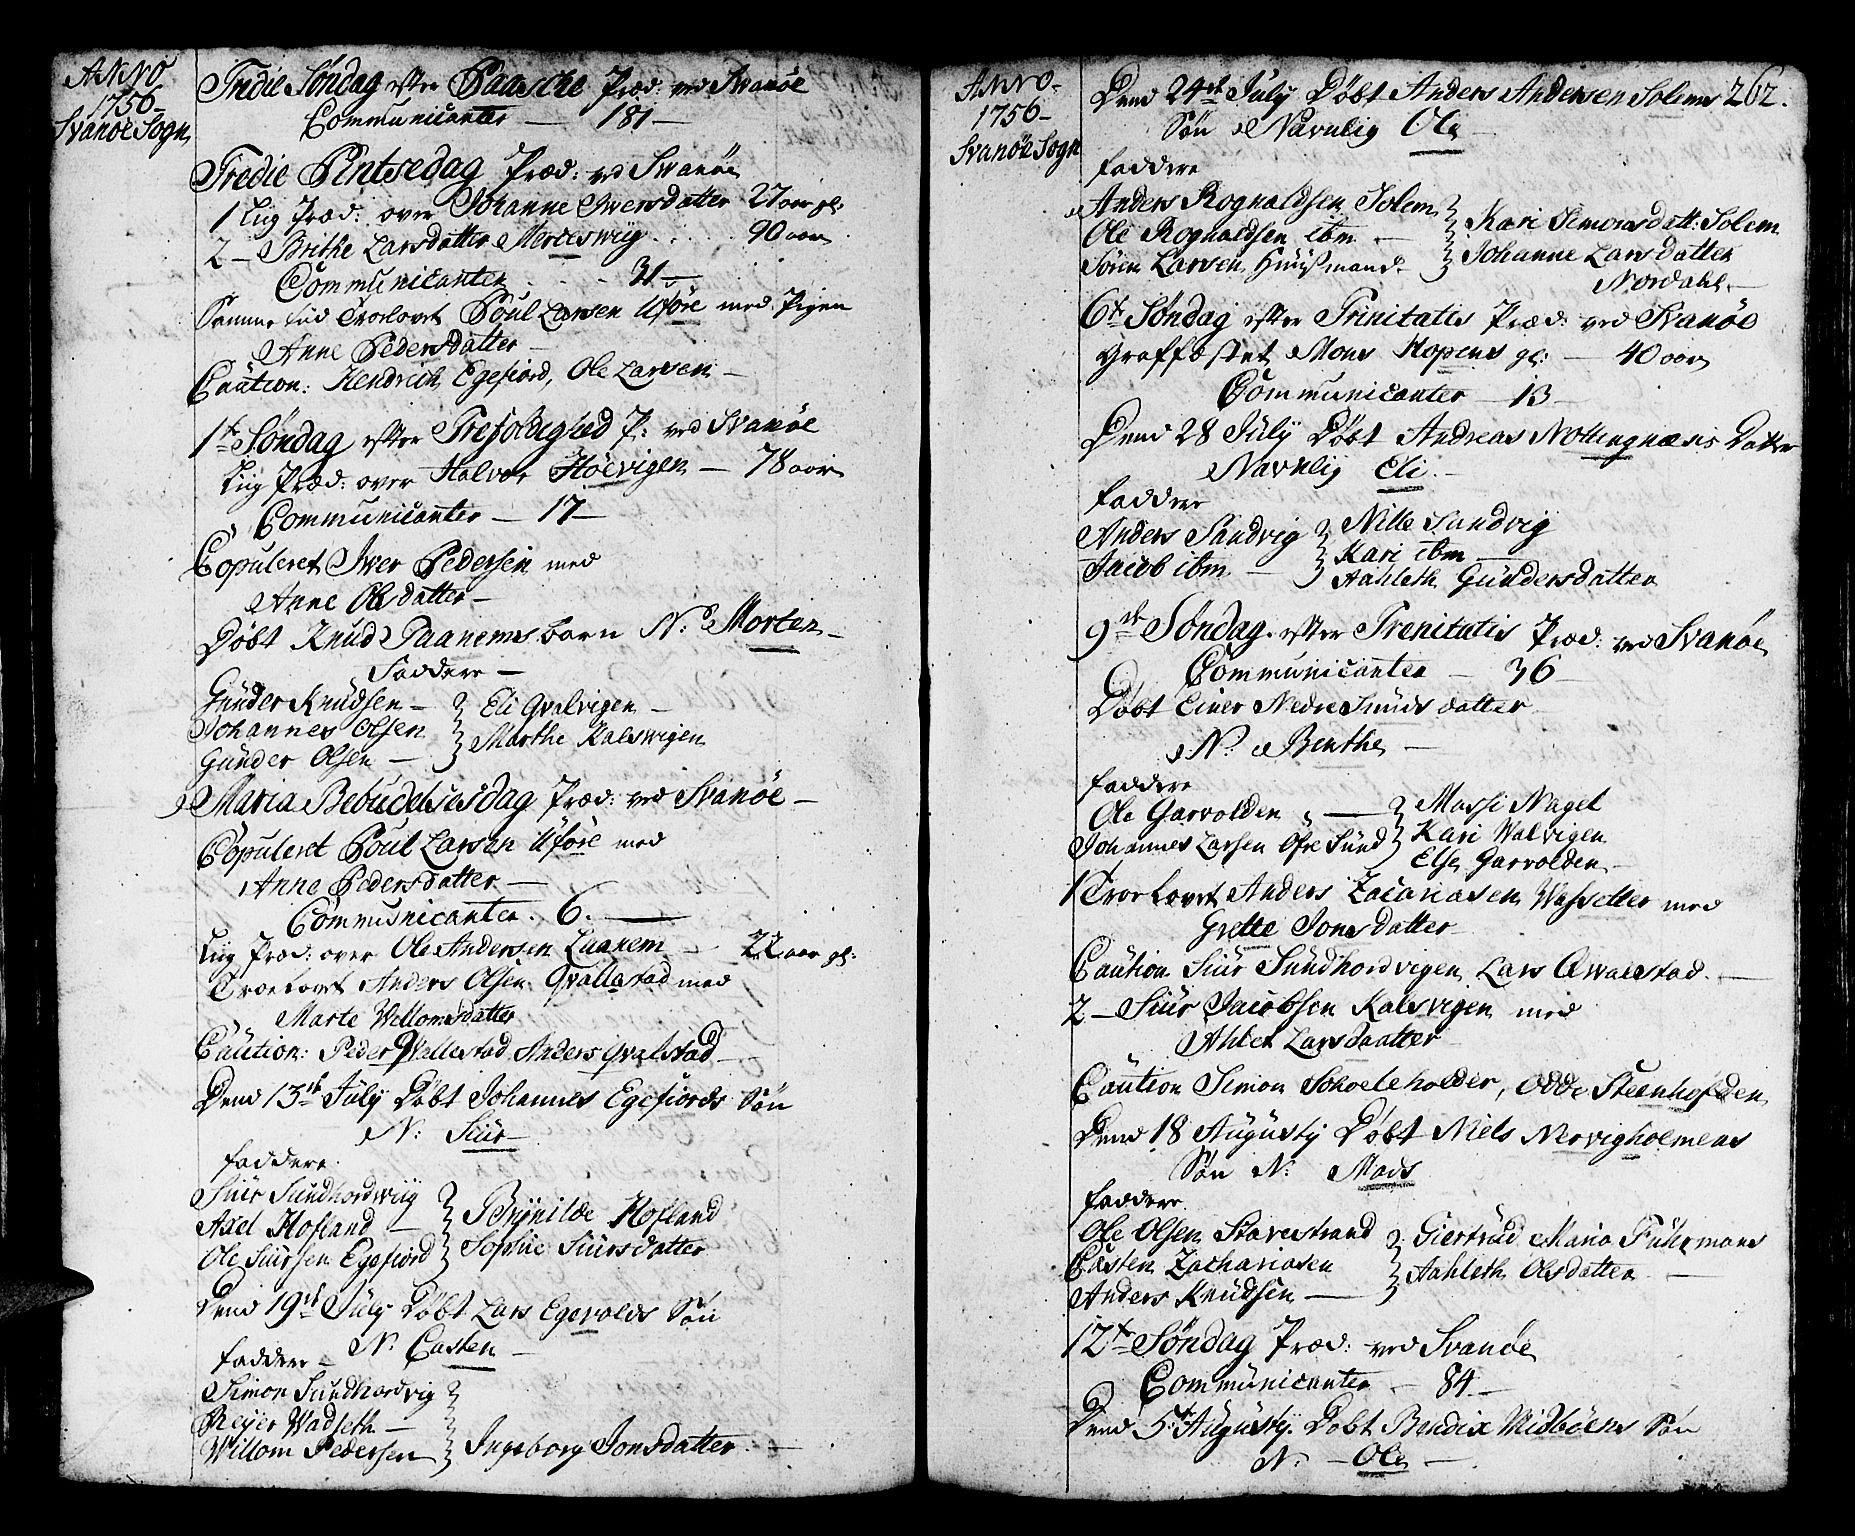 ANNO
1756
Svanöe Sogn
Tredie Söndag efter Paasche Præd: ved Svanöe
Communicanter — 181 —
Tredie Pintsedag Præd: ved Svanöe
1 Liig Præd: over Johanne Iversdatter 27 aar gl:
2 — Brithe Larsdatter Merdeswiig . . . 90 aar
Communicanter . . . 31 —
Samme tiid Trolovet Poul Larsen Uföre med Pigen
Anne Pedersdatter —
Caution: Hendrich Egefiord, Ole Larsen —
1te Söndag efter Trefoldighed P: ved Svanöe
Liig Præd: over Halvor Höevigen — 78 aar
Communicanter — 17 —
Copuleret Iver Pedersen med
Anne Olsdatter —
Döbt Knud Taanems barn N: Morten —
Faddere —
Gunder Knudsen —
Johannes Olsen
Gunder Olsen —
Eli Qvalvigen —
Marthe Kalsvigen
Maria Bebudelsesdag Præd: ved Svanöe —
Copuleret Poul Larsen Uföre med
Anne Pedersdatter —
Communicanter . 6. —
Liig Præd: over Ole Andersen Laanem — 22 aar gl:
Troelovet Anders Olsen Qvallestad med
Marte Willomsdatter
Caution: Peder Qvallestad Anders Qvalstad
Dend 13de July Döbt Johannes Egefiords Sön
N: Siur
faddere
Siur Sundhordwiig
Axel Hofland —
Ole Siursen Egefiord
Brynilde Hofland
Sophie Siursdatter
Dend 19de July Döbt Lars Egevolds Sön
N: Casten —
faddere —
Simon Sundhordvig
Reyer Wadseth —
Willom Pedersen
Ingeborg Jonsdatter —
ANNO
1756
Svanöe Sogn
262.
Dend 24de July Döbt Anders Andersen Solems
Sön Navnlig Ole —
faddere
Anders Rognaldsen Solem
Ole Rognaldsen ibm —
Sören Larsen Huusmand
Kari Simonsdatt: Solem
Johanne Larsdatter
Nordahl —
6te Söndag efter Trinitatis Præd: ved Svanöe
Graffæstet Mons Hopens gl: — 40 aar
Communicanter — 13 —
Dend 28 July Döbt Andreas Nottingnæsis Datter
Navnlig Eli —
faddere
Anders Sandvig
Jacob ibm —
Nille Sandvig
Kari ibm —
Aahleth Gundersdatter
9de Söndag efter Trenitatis Præd: ved Svanöe
Communicanter — 36
Döbt Einer Nedre Sunds datter
N: Benthe —
faddere
Ole Garvolden —
Johannes Larsen Öfre Sund
Massi Nagel
Kari Walvigen
Else Garvolden —
1 Troelovet Anders Zacariasen Wassetter med
Grette Jonsdatter
Caution Siur Sundhordvigen Lars Qwalstad —
2 — Siur Jacobsen Kalsvigen med
Ahlet Larsdaatter
Caution Simon Schoeleholder, Odde Steenhofden
Dend 18 Augusty Döbt Niels Nervigholmens
Sön N: Mads
faddere
Ole Olsen Stavestrand
Casten Zachariasen
Anders Knudsen —
Giertrud Maria Fuhrmans
Aahleth Olsdatter —
12te Söndag Præd: ved Svanöe
Communicanter — 84 —
Dend 5te Augusty Döbt Bendix Midböens Sön
N: — Ole —